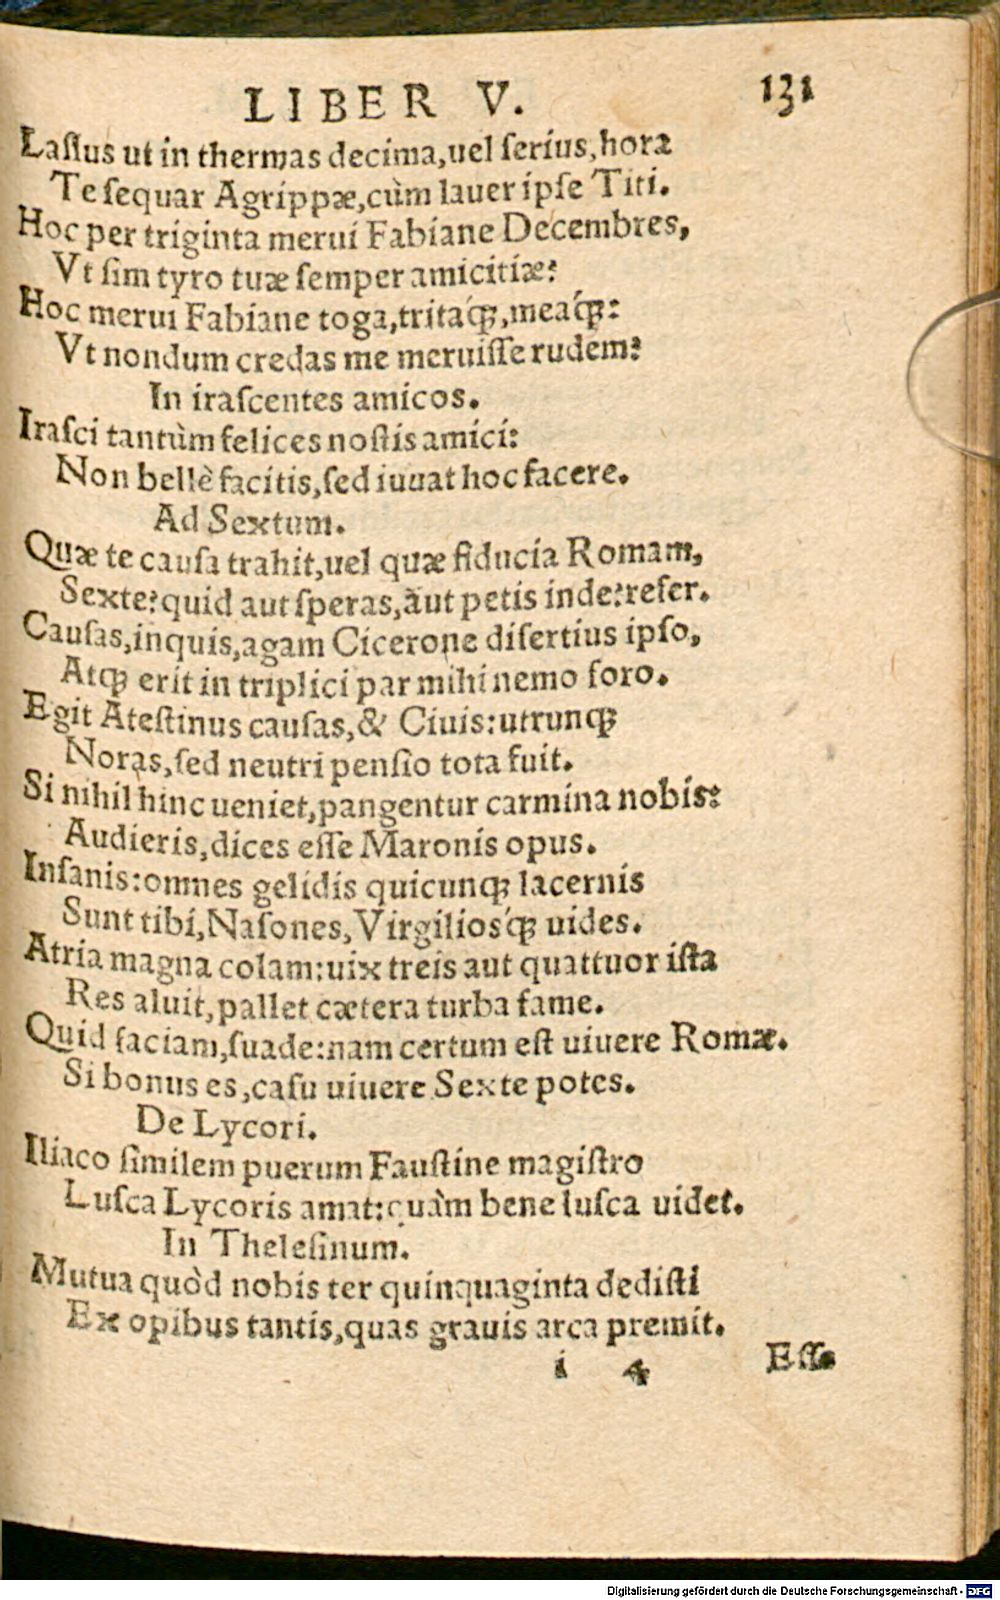 LIBER V. 131
Lassus ut in thermas decima,uel serius,hora
Te sequar Agrippæ,cùm lauer ipse Titi.
Hoc per triginta merui Fabiane Decembres,
Vt sim tyro tuæ semper amicitiæ?
Hoc merui Fabiane toga,tritaq́ꝫ,meaq́ꝫ:
Vt nondum credas me meruisse rudem?
In irascentes amicos.
Irasci tantùm felices nostis amici:
Non bellè facitis,sed iuuat hoc facere.
Ad Sextum.
Quæ te causa trahit,uel quæ fiducia Romam,
Sexte?quid aut speras,aut petis inde?refer.
Causas,inquis,agam Cicerone disertius ipso,
Atqꝫ erit in triplici par mihi nemo foro.
Egit Atestinus causas,& Ciuis:utrunqꝫ
Noras,sed neutri pensio tota fuit.
Si nihil hinc ueniet,pangentur carmina nobis:
Audieris,dices esse Maronis opus.
Insanis:omnes gelidis quicunqꝫ lacernis
Sunt tibi,Nasones,Virgiliosq́ꝫ uides.
Atria magna colam:uix treis aut quattuor ista
Res aluit,pallet cætera turba fame.
Quid faciam,suade:nam certum est uiuere Romæ.
Si bonus es,casu uiuere Sexte potes.
De Lycori.
Iliaco similem puerum Faustine magistro
Lusca Lycoris amat:quàm bene lusca uidet.
In Thelesinum.
Mutua quòd nobis ter quinquaginta dedisti
Ex opibus tantis,quas grauis arca premit.
i 4 Esse
Digitalisierung gefördert durch die Deutsche Forschungsgemeinschaft - DFG